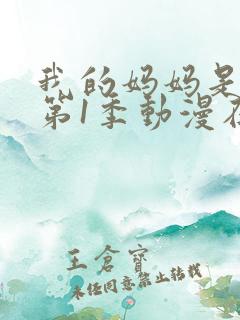 我的妈妈是
第1季動漫在
王倉寶
未经同意禁止转载